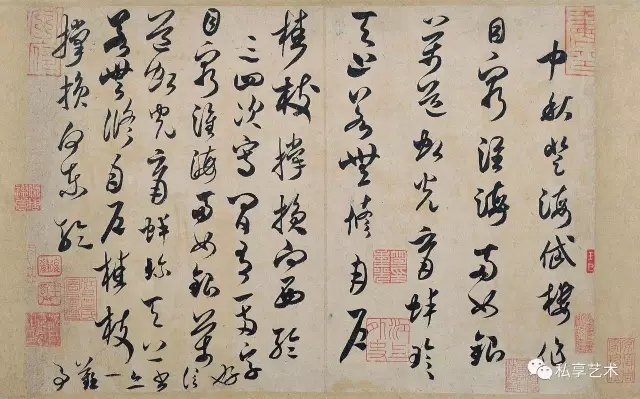 中秋登海岱樓作
目窮淮海兩如銀
萬道虹光育蚌珍
天上若無修月戶
桂枝撐損向西輪
三四次寫間有一兩字好
信書亦一難事
目窮淮海兩如銀萬
道虹光育蚌珍天上
若無修月戶桂枝
撐損向東輪
私享艺术